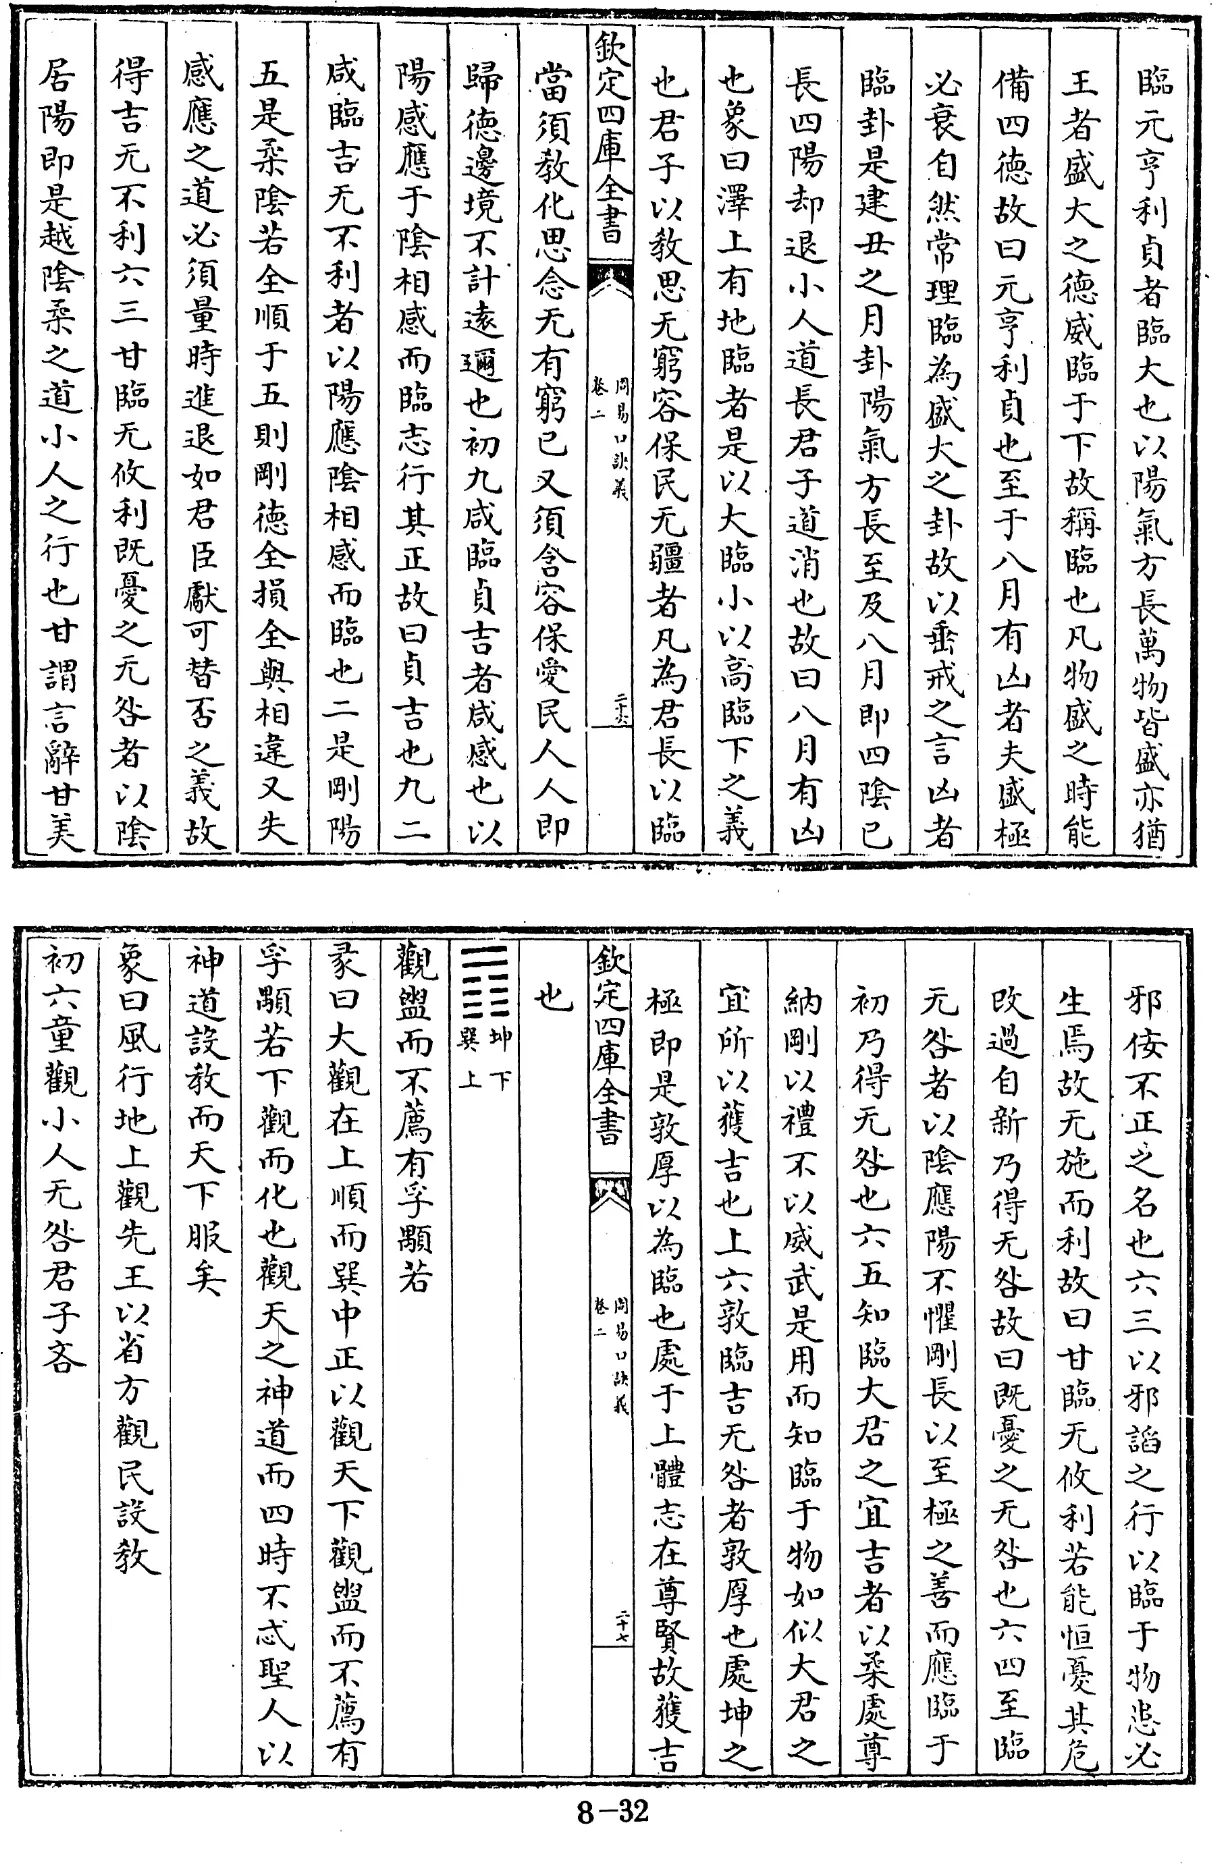 臨元亨利貞者臨大也以陽氣方長萬物皆盛亦猶
王者盛大之德威臨于下故稱臨也凡物盛之時能
備四德故曰元亨利貞也至于八月有凶者夫盛極
必衰自然常理臨為盛大之卦故以垂戒之言凶者
臨卦是建丑之月卦陽氣方長至及八月即四陰已
長四陽却退小人道長君子道消也故曰八月有凶
也象曰澤上有地臨者是以大臨小以高臨下之義
也君子以教思无窮容保民无疆者凡為君長以臨
欽定四庫全書
周易口訣義
卷二
二十六
當須教化思念无有窮已又須含容保愛民人人即
歸德邊境不計遠邇也初九咸臨貞吉者咸感也以
陽感應于陰相感而臨志行其正故曰貞吉也九二
咸臨吉无不利者以陽應陰相感而臨也二是剛陽
五是柔陰若全順于五則剛德全損全與相違又失
感應之道必須量時進退如君臣獻可替否之義故
得吉无不利六三甘臨无攸利既憂之无咎者以陰
居陽即是越陰柔之道小人之行也甘謂言辭甘美
邪佞不正之名也六三以邪諂之行以臨于物患必
生焉故无施而利故曰甘臨无攸利若能恒憂其危
改過自新乃得无咎故曰既憂之无咎也六四至臨
无咎者以陰應陽不懼剛長以至極之善而應臨于
初乃得无咎也六五知臨大君之宜吉者以柔處尊
納剛以禮不以威武是用而知臨于物如似大君之
宜所以獲吉也上六敦臨吉无咎者敦厚也處坤之
極即是敦厚以為臨也處于上體志在尊賢故獲吉
欽定四庫全書
周易口訣義
卷二
二十七
也
坤下
巽上
觀盥而不薦有孚顒若
彖曰大觀在上順而巽中正以觀天下觀盥而不薦有
孚顒若下觀而化也觀天之神道而四時不忒聖人以
神道設教而天下服矣
象曰風行地上觀先王以省方觀民設教
初六童觀小人无咎君子吝
8-32